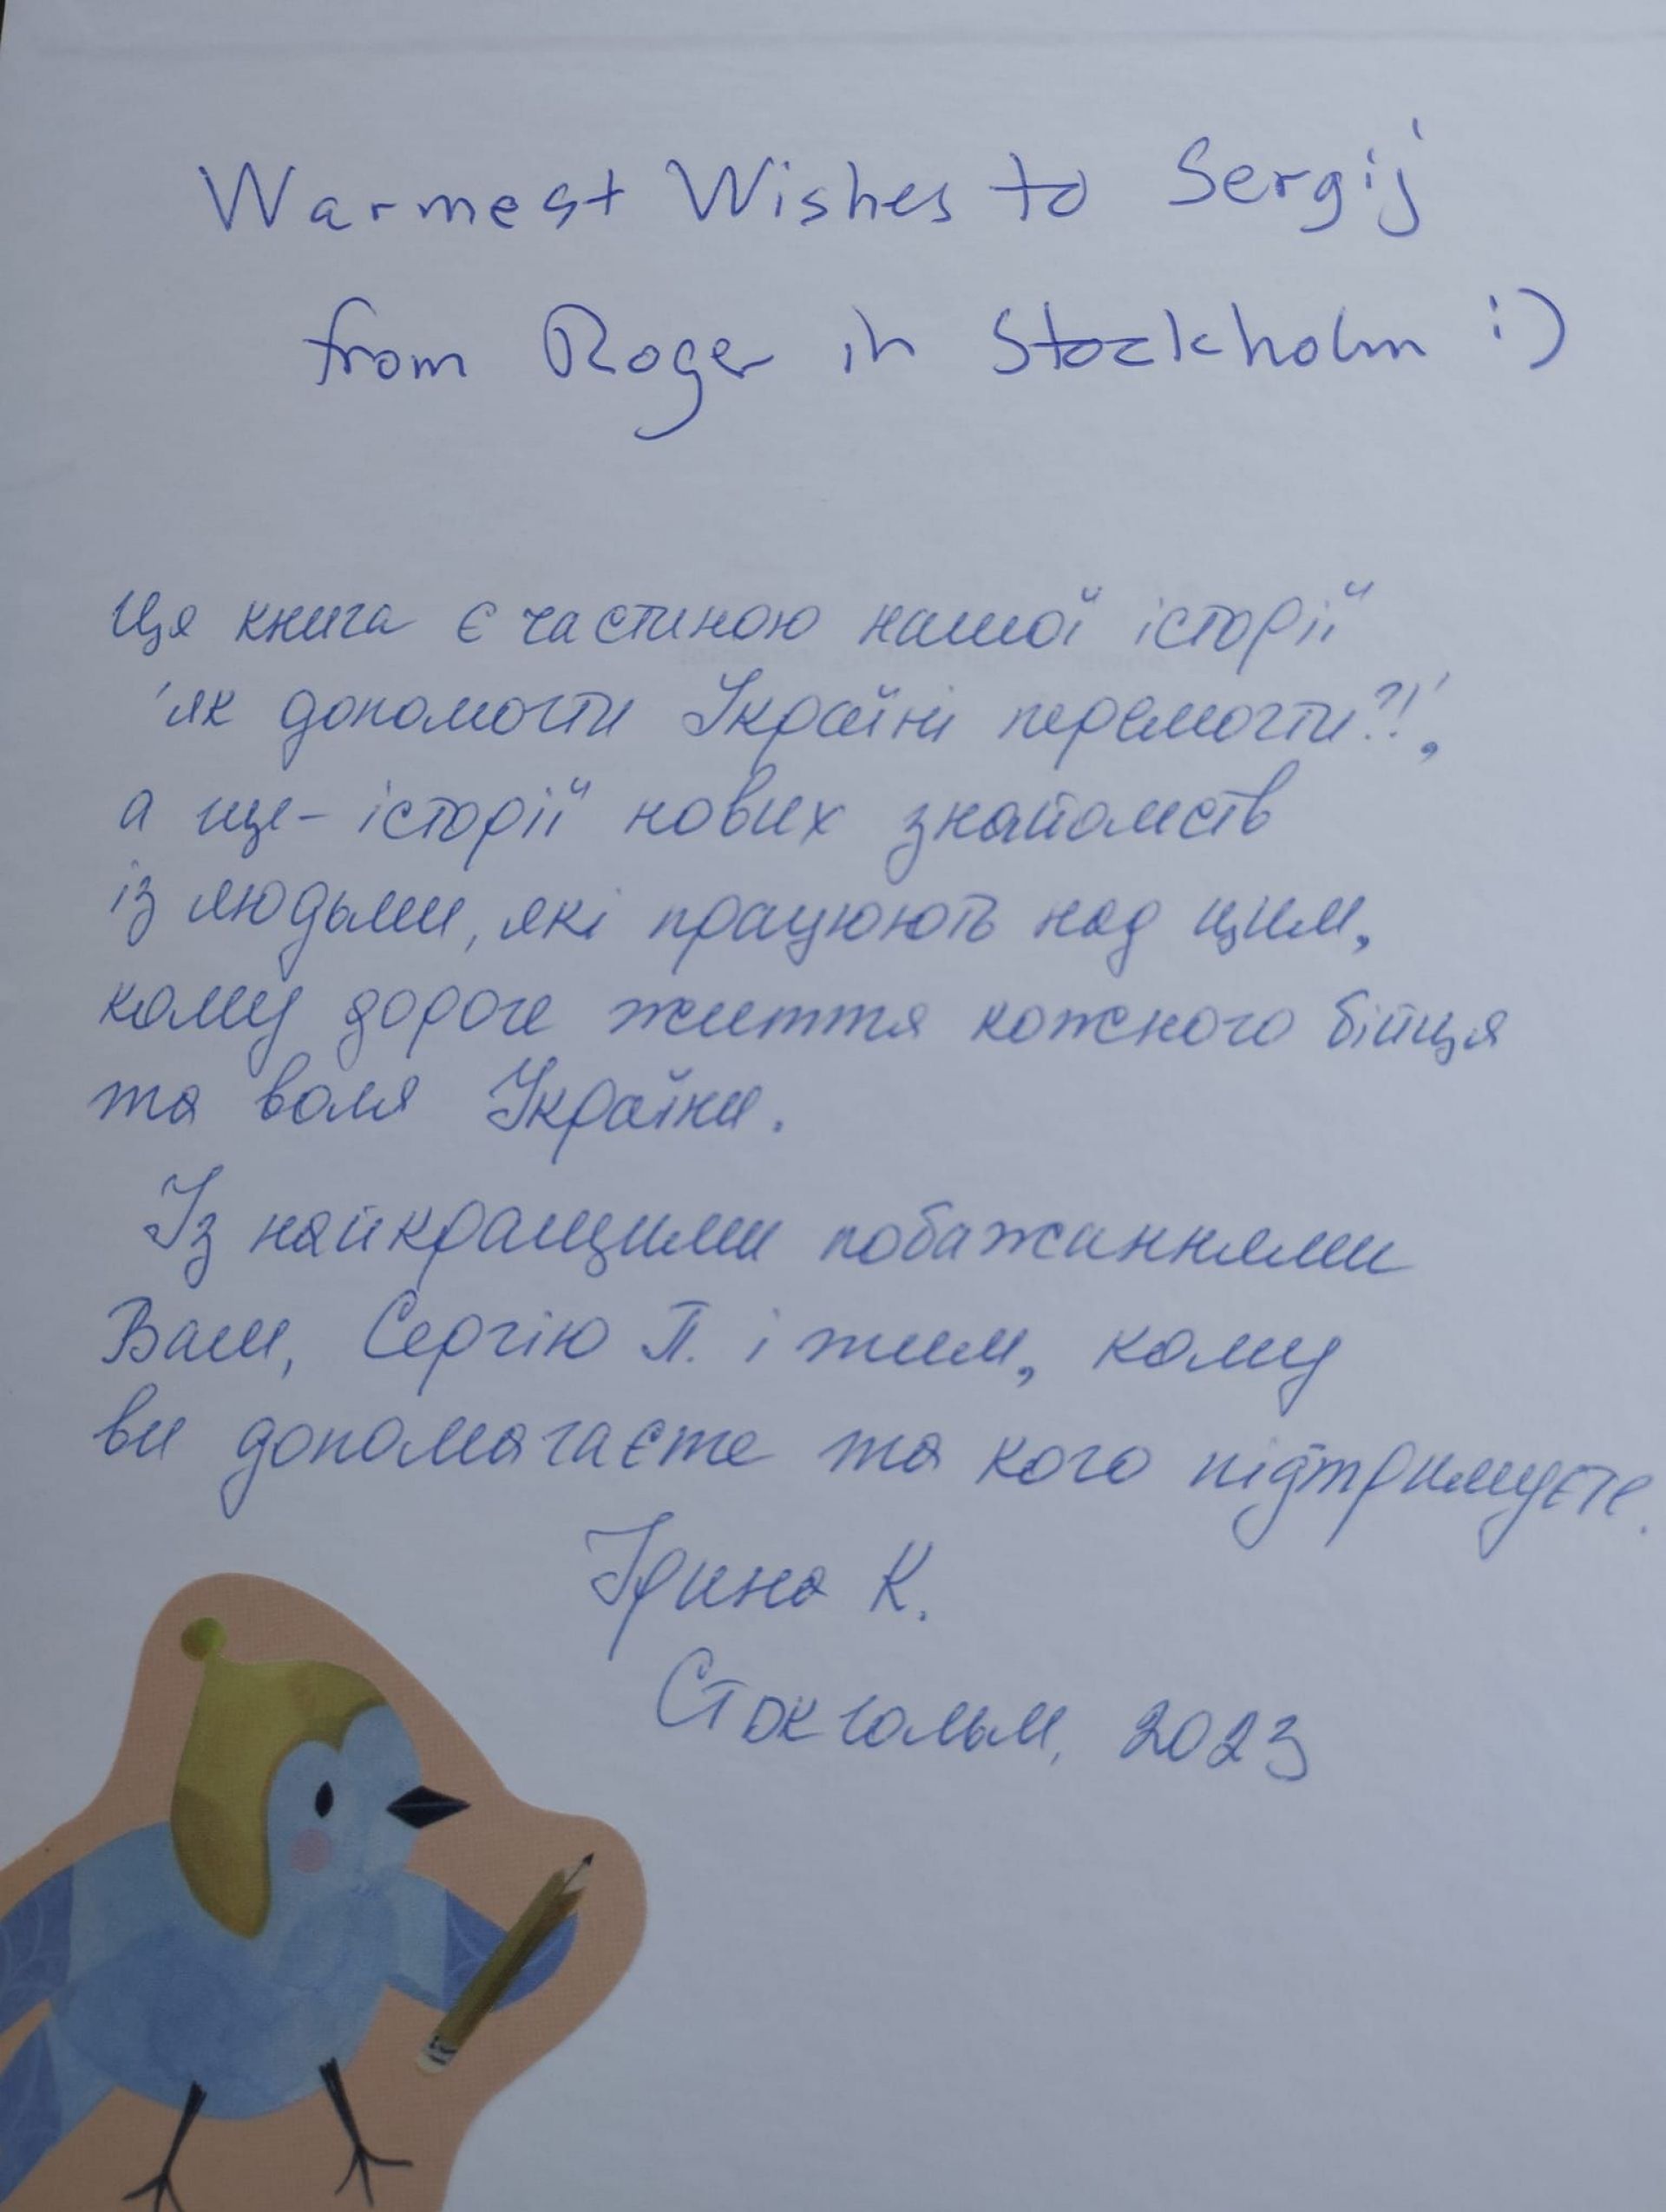 Warmest Wishes to Sergij
from Roger in Stockholm :)
Ця книга є частиною нашої історії
'як допомогти Україні перемогти?!',
а ще - історії нових знайомств
із людьми, які працюють над цим,
кому дороге життя кожного бійця
та воля України.
Із найкращими побажаннями
Вам, Сергію П. і тим, кому
ви допомагаєте та кого підтримуєте.
Ірина К.
Стокгольм, 2023